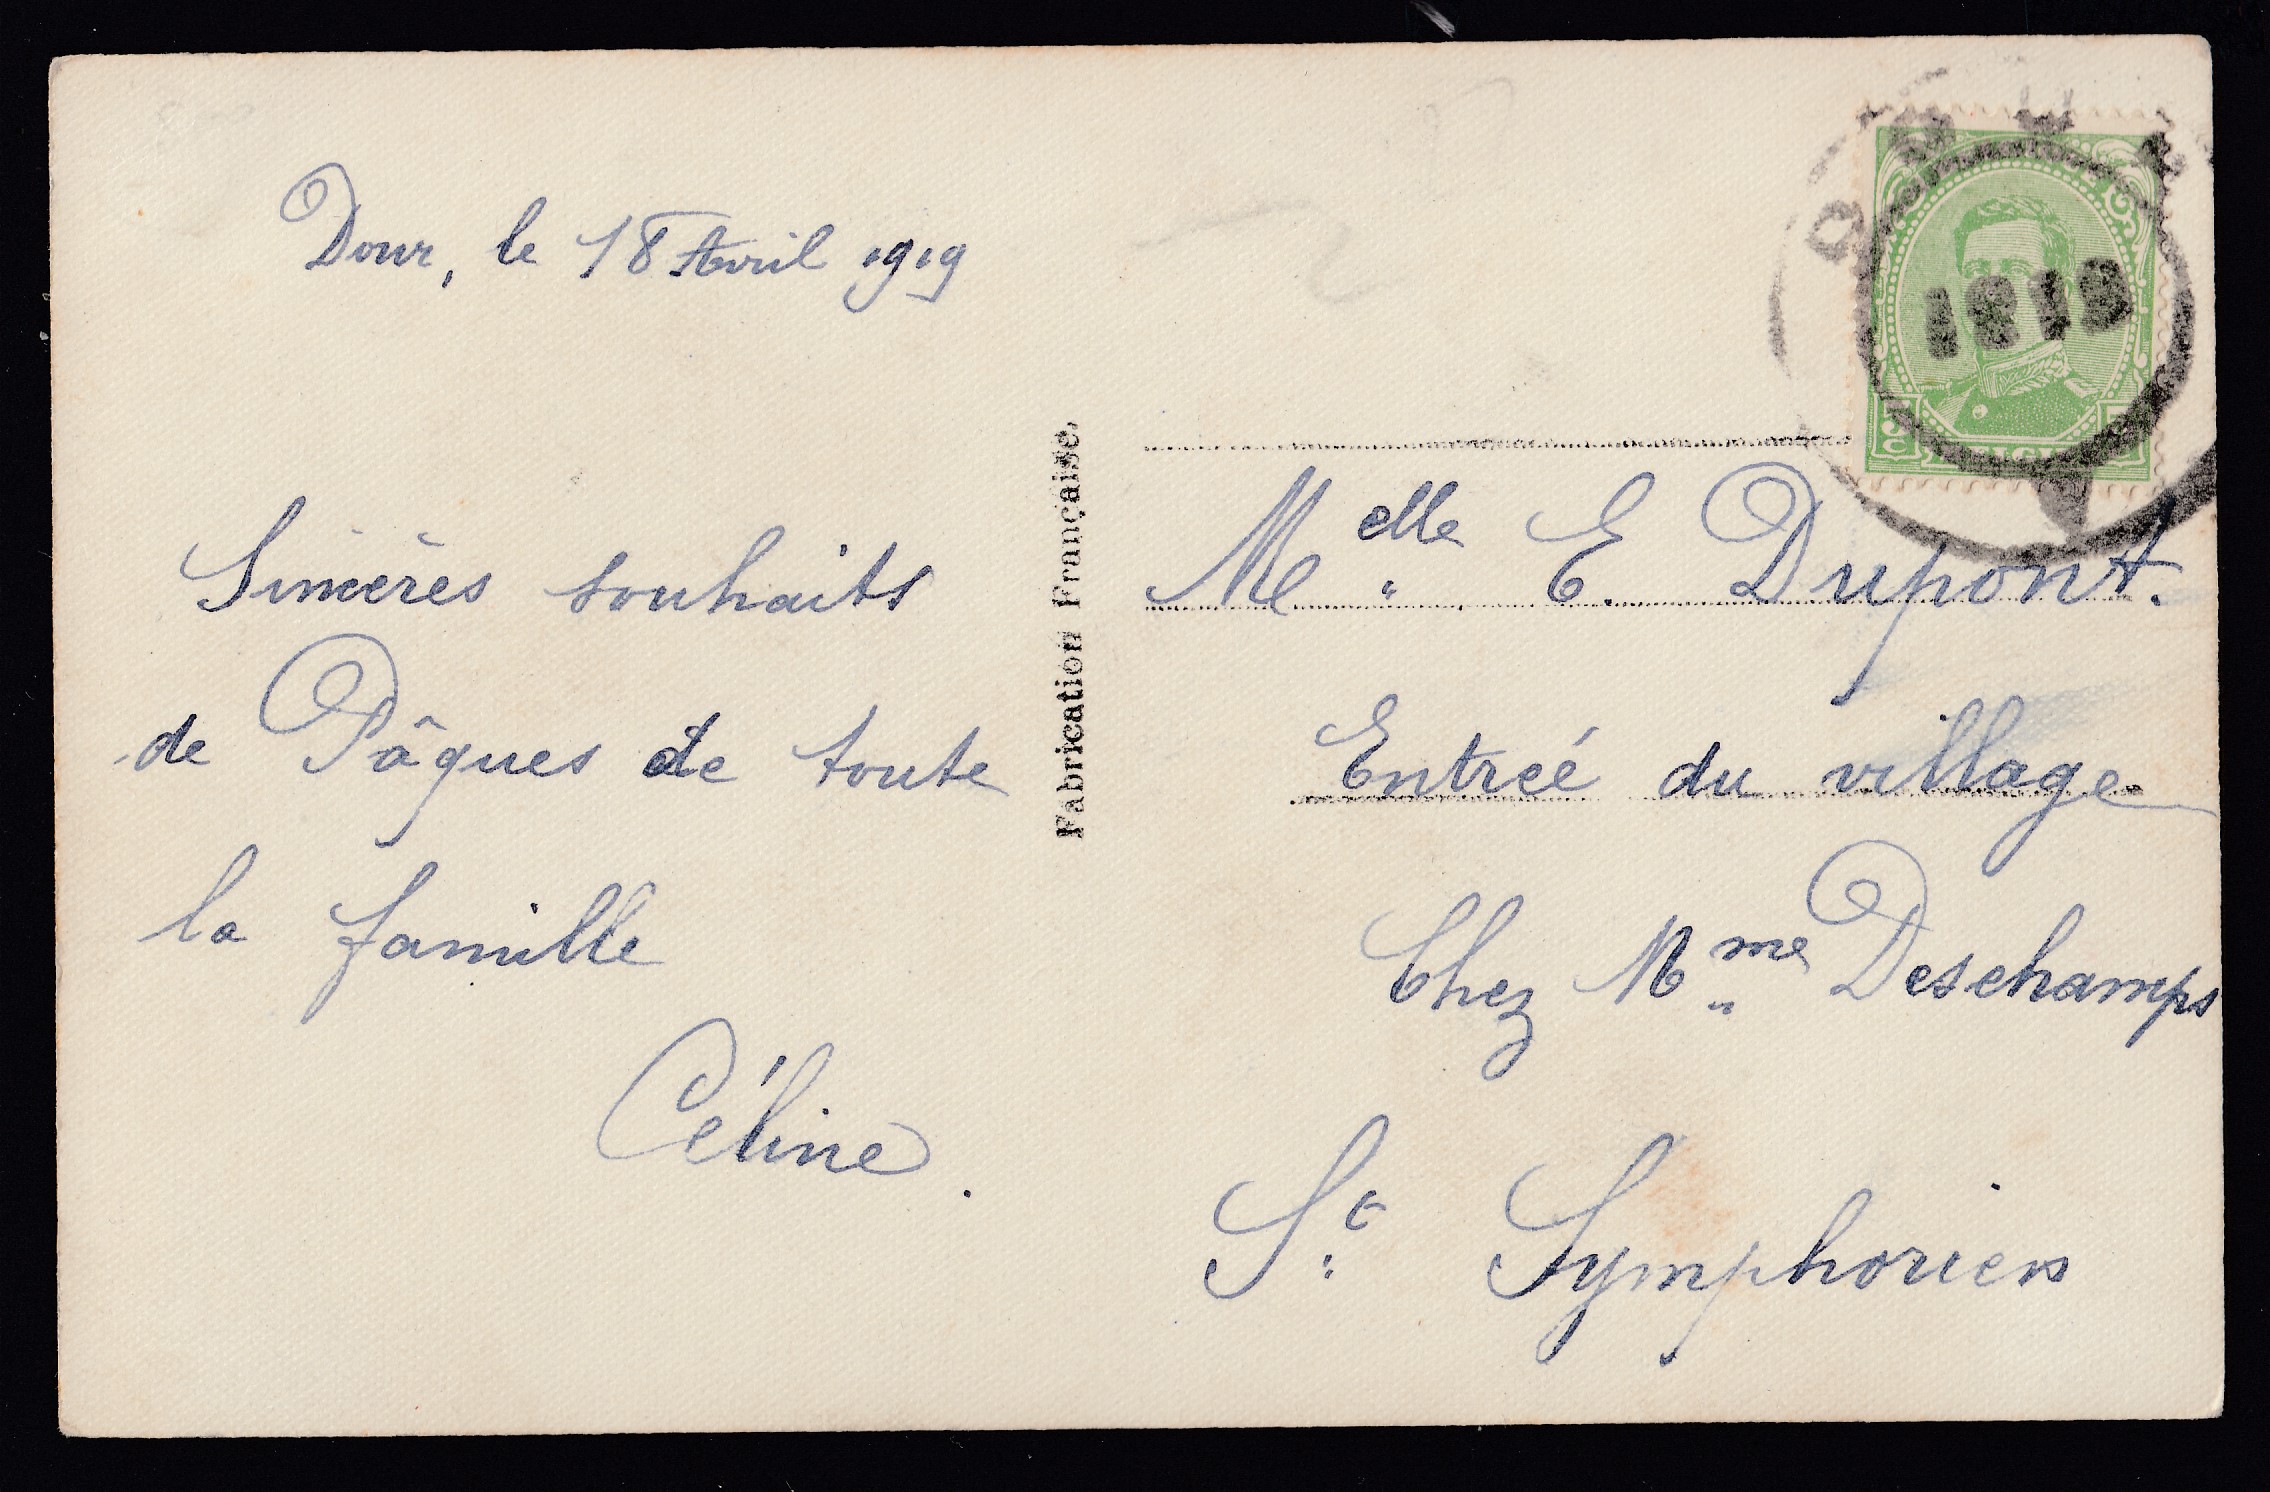 Dour, le 18 Avril 1919
Sincères souhaits
de Pâques de toute
la famille
Céline.
Fabrication Française.
1919
5
C
Melle E. Dupont.
Entrée du village
Chez Mme Deschamps
St Symphorien